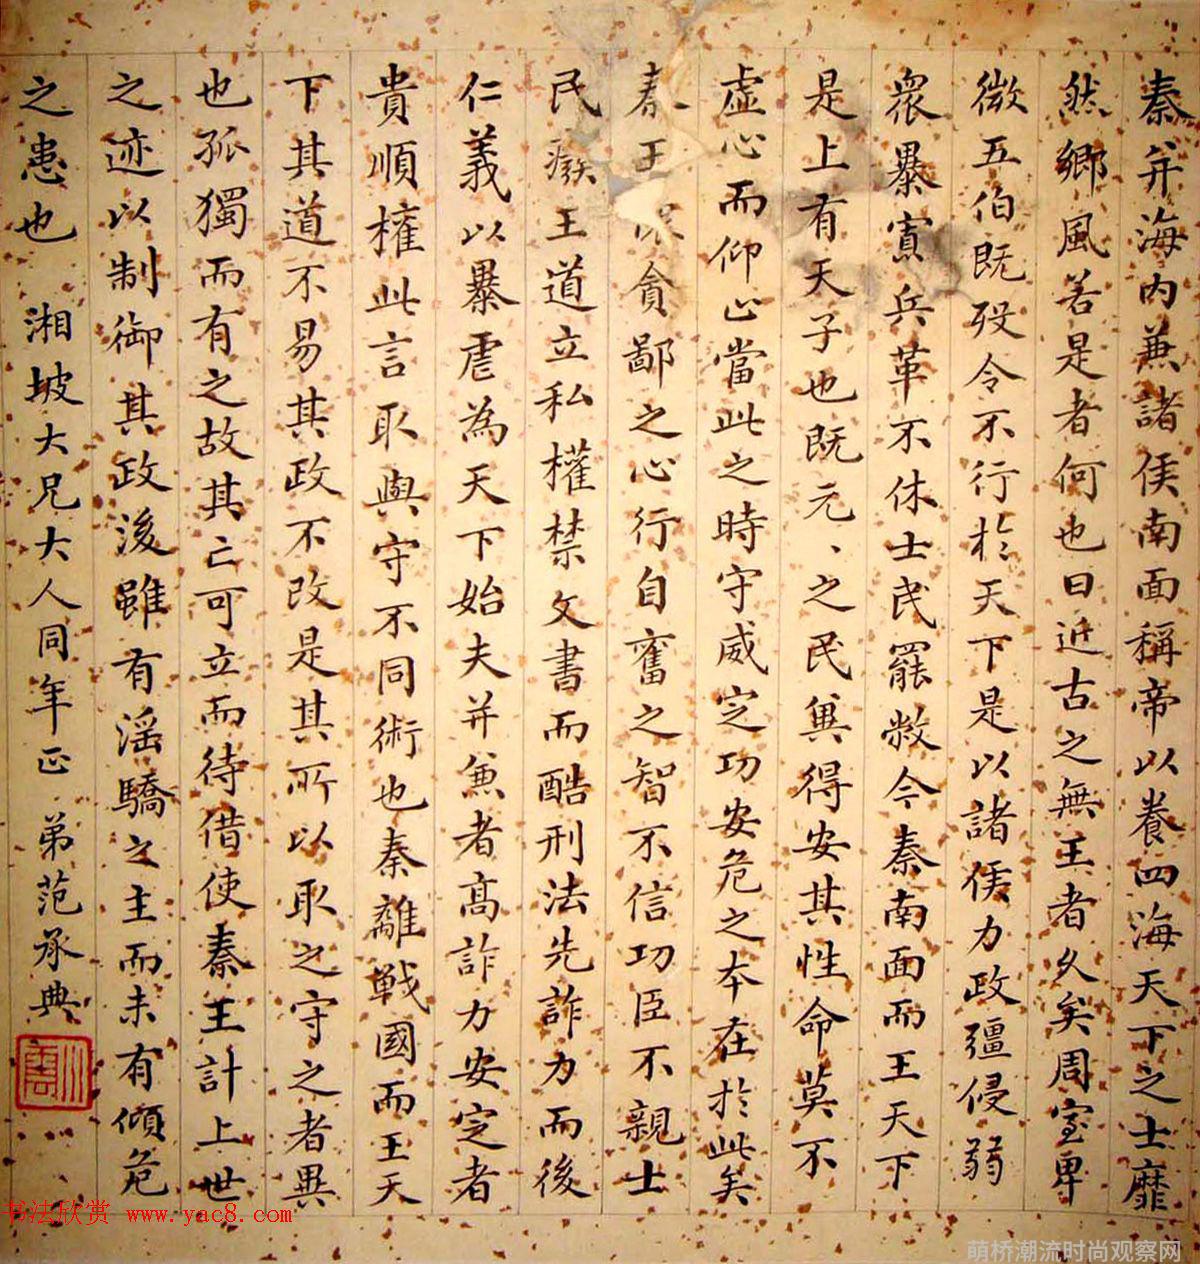 秦并海内兼諸侯南面稱帝以養四海天下之士靡
然鄉風若是者何也曰近古之無王者久矣周室卑
微五伯既歿令不行於天下是以諸侯力政彊侵弱
衆暴寡兵革不休士民罷敝今秦南面而王天下
是上有天子也既元、之民兾得安其性命莫不
虛心而仰止當此之時守威定功安危之本在於此矣
秦王貪鄙之心行自奮之智不信功臣不親士
民廢王道立私權禁文書而酷刑法先詐力而後
仁義以暴虐為天下始夫并兼者高詐力安定者
貴順權此言取與守不同術也秦離戰國而王天
下其道不易其政不改是其所以取之守之者異
也孤獨而有之故其亡可立而待借使秦王計上世
之迹以制御其政後雖有淫驕之主而未有傾危
之患也 湘坡大兄大人同年正 弟范承典
书法欣赏 www.yac8.com
萌桥潮流时尚观察网